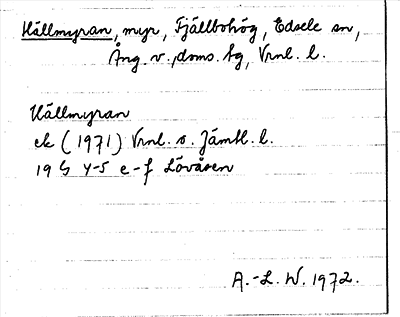 Hällmyran, myr, Fjällbohög, Edsele sn,
Ång. v. doms. hg, Vrnl. l.
Hällmyran
ek (1971) Vrnl. o. Jämtl. l.
19 G 4-5 e-f Lövåsen
A.-L. W. 1972.